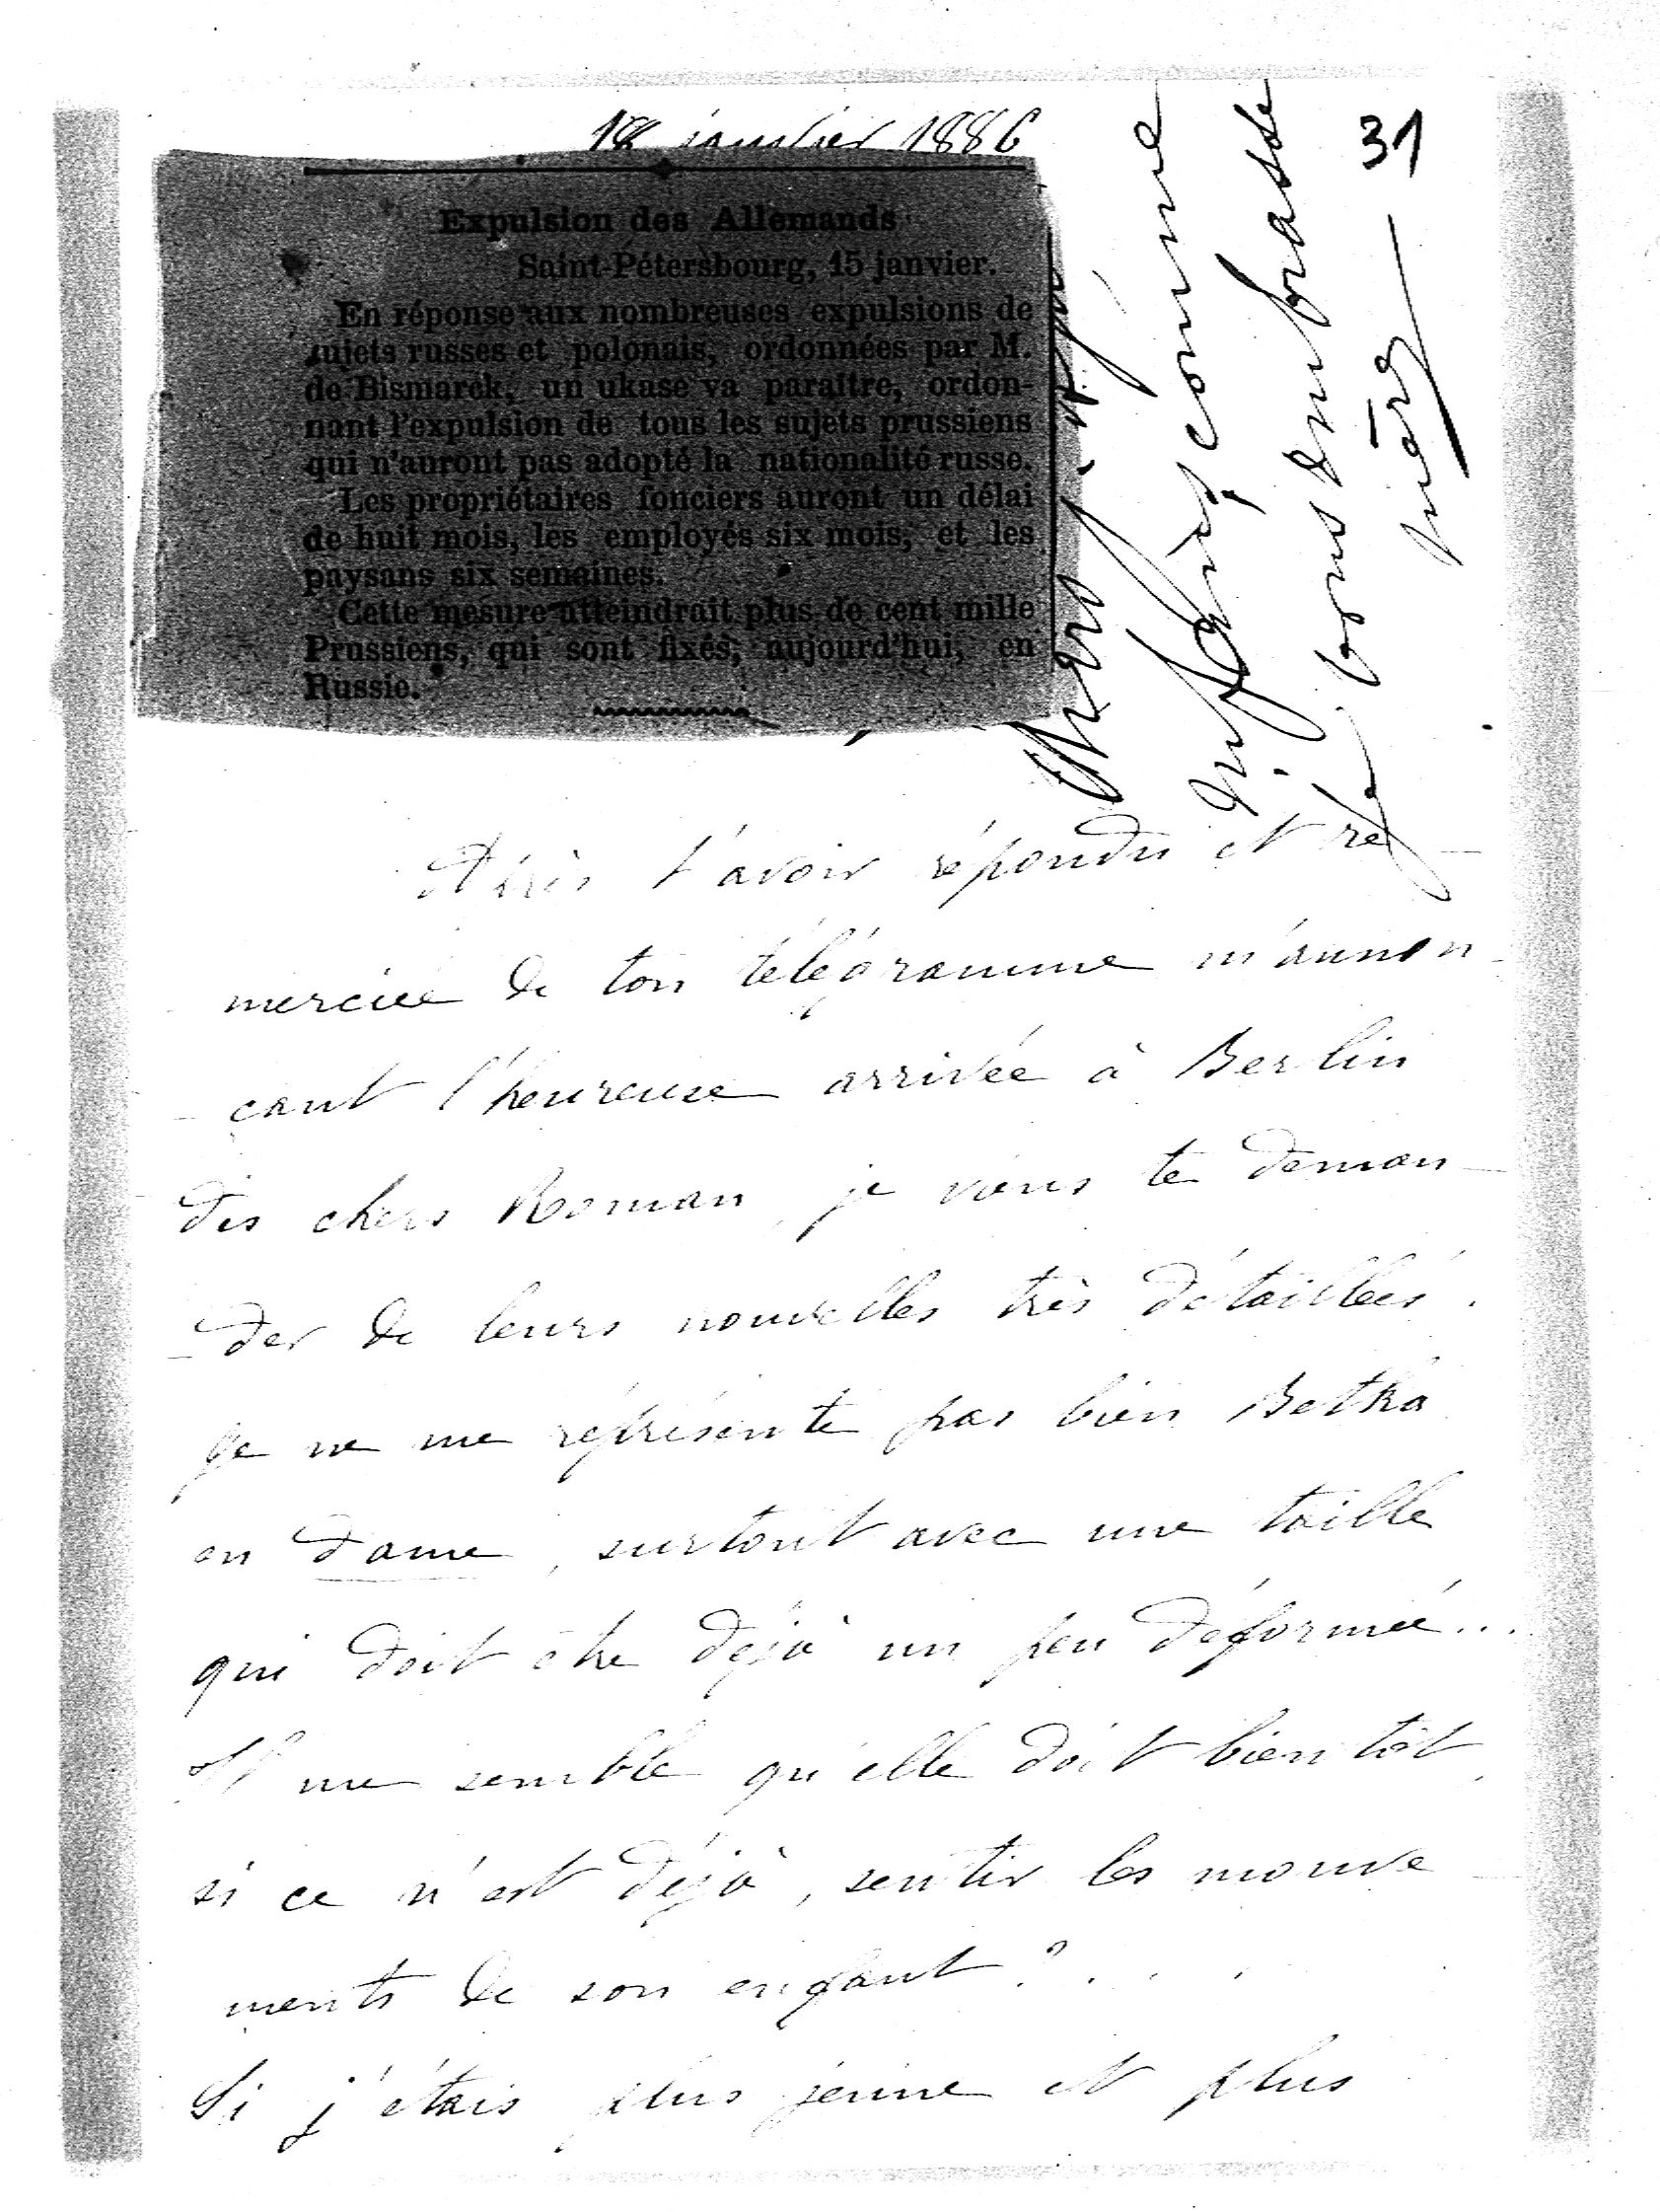 18 janvier 1886
31
Expulsion des Allemands
Saint-Pétersbourg, 15 janvier.
En réponse aux nombreuses expulsions de
sujets russes et polonais, ordonnées par M.
de Bismarck, un ukase va paraître, ordon-
nant l'expulsion de tous les sujets prussiens
qui n'auront pas adopté la nationalité russe.
Les propriétaires fonciers auront un délai
de huit mois, les employés six mois, et les
paysans six semaines.
Cette mesure atteindrait plus de cent mille
Prussiens, qui sont fixés, aujourd'hui, en
Russie.
comme
je vous embrasse
mère
Après t'avoir répondu et re
merciée de ton télégramme m'annon
-cant l'heureuse arrivée à Berlin
des chers Roman, je viens te deman-
-der de leurs nouvelles très détaillées.
je ne me représente pas bien Betka
en dame, surtout avec une taille
qui doit être déjà un peu déformée...
Il me semble qu'elle doit bientôt,
si ce n'est déjà, sentir les mouve
ments de son enfant ? . . .
Si j'étais plus jeune et plus